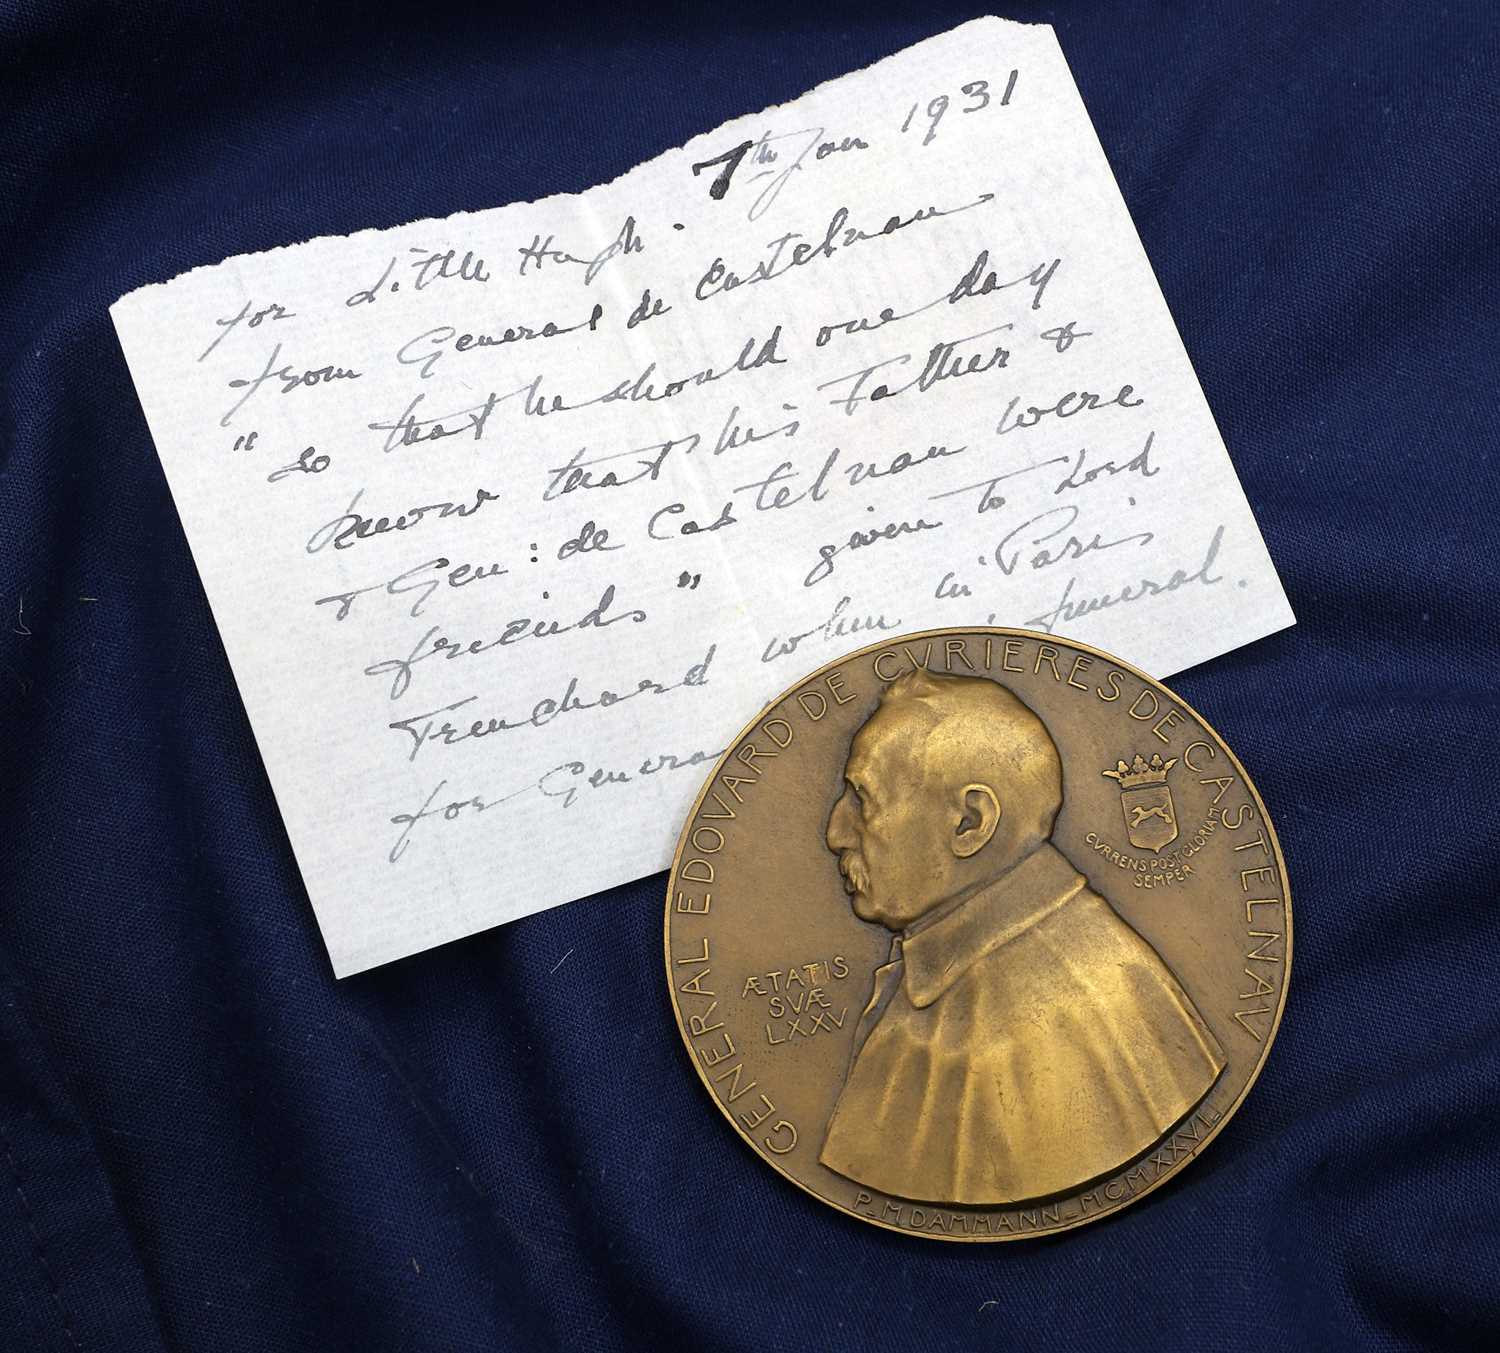 7th Jan 1931
for Little Hugh.
from General de Castelnau
"so that he should one day
know that his Father &
& Gen: de Castelnau were
friends" given to Lord
Trenchard when in Paris
for General funeral.
GENERAL EDOVARD DE CVRIERES DE CASTELNAV
CVRRENS POST GLORIAM
SEMPER
ÆTATIS
SVÆ
LXXV
P_M DAMMANN_MCMXXVI